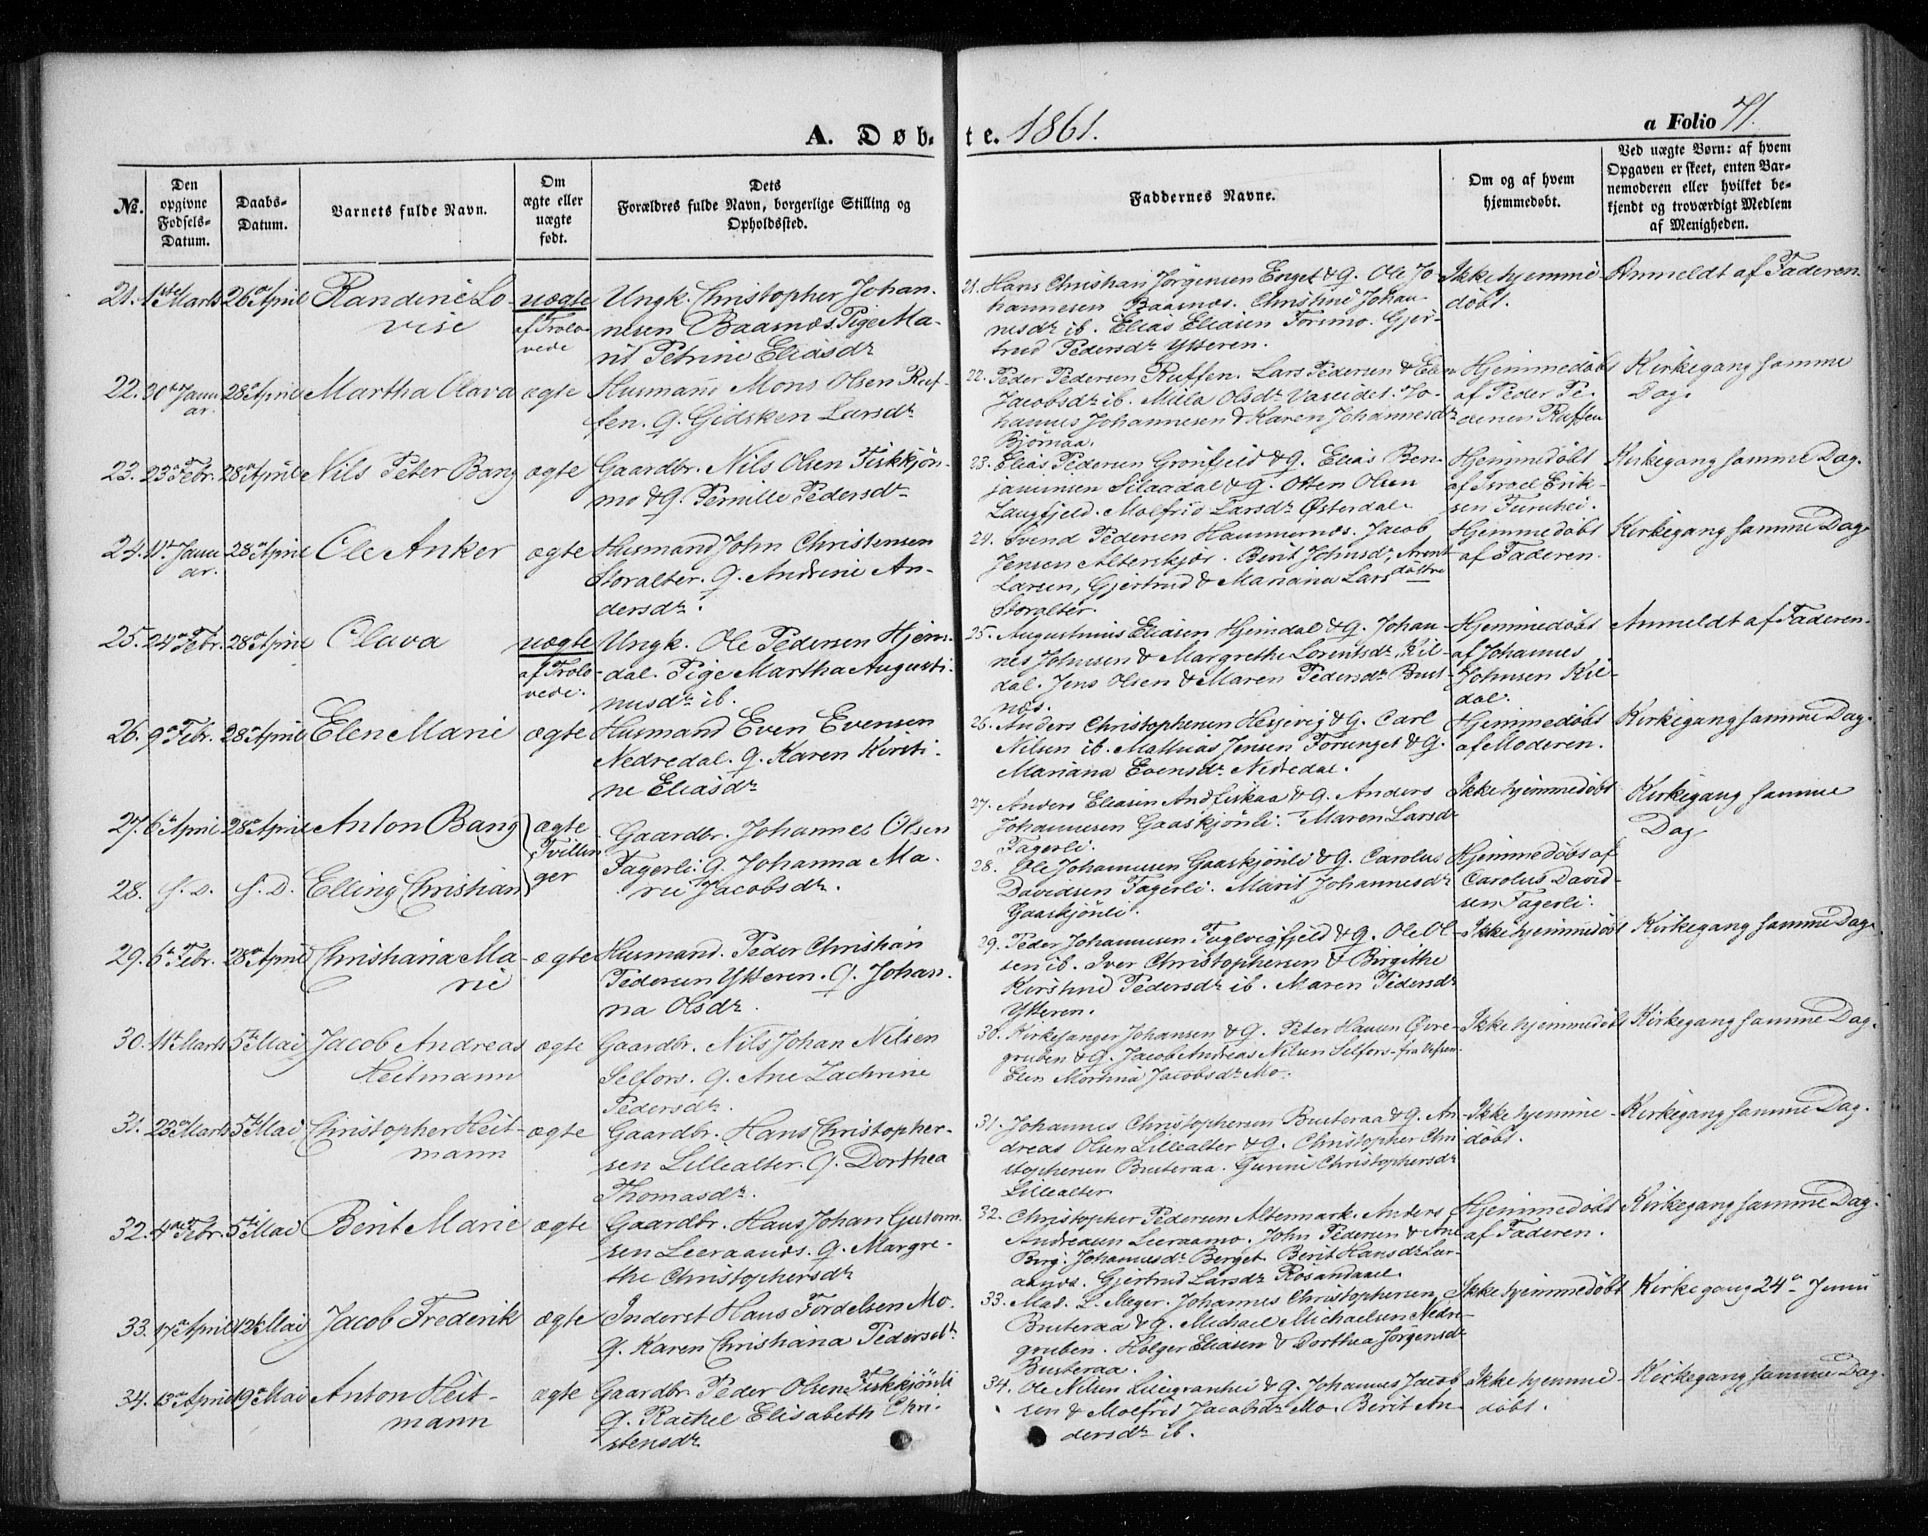 A. Døbte. 1861.
a Folio 71.
№.
Den opgivne Fødsels-Datum.
Daabs-Datum.
Barnets fulde Navn.
Om ægte eller uægte født.
Dets Forældres fulde Navn, borgerlige Stilling og Opholdssted.
Faddernes Navne.
Om og af hvem hjemmedøbt.
Ved uægte Børn: af hvem Opgaven er skeet, enten Barnemoderen eller hvilket bekjendt og troværdigt Medlem af Menigheden.
21. 1ste Marts 26de April Randine Lo-
vise
uægte
af Trolo-
vede
Ungk. Christopher Johan-
nesen Baasmos. Pige Ma-
rit Petrine Eliasdr
21. Hans Christian Jørgensen Enget & G. Ole Jo-
hannesen Baasmos. Christine Johan-
nesdr ib. Elias Eliasen Forsmo. Gjer-
trud Pedersdr Ytteren.
Ikke hjemme-
døbt.
Anmeldt af Faderen
22. 20de Janu-
ar. 28de April Martha Olava ægte
Husmann Mons Olsen Ruf-
fen. G. Gidsken Larsdr
22. Peder Pedersen Ruffen. Lars Pedersen & Elen
Jacobsdr ib. Mila Olsdr Vaseidet. Jo-
hannes Johannesen & Karen Johannesdr
Bjørnaa.
Hjemmedøbt
af Peder Pe-
dersen Ruffen
Kirkegang samme
Dag.
23. 23de Febr. 28de April Nils Peter Bang ægte
Gaardbr. Nils Olsen Fiskkjøn-
mo & G. Pernille Pedersdr
23. Elias Pedersen Grønfjeld & G. Elias Ben-
jaminsen Silaadal & G. Otten Olsen
Langfjeld. Molfrid Larsdr Østerdal.
Hjemmedøbt
af Israel Erik-
sen Furuhei.
Kirkegang samme Dag.
24. 11te Janu-
ar. 28de April Ole Anker ægte
Husmand John Christensen
Storalter. G. Andrine An-
dersdr.
24. Svend Pedersen Hammernæs. Jacob
Jensen Alterskjær. Berit Johnsdr, Arent
Larsen, Gjertrud & Mariana Lars døttre
Storalter.
Hjemmedøbt
af Faderen.
Kirkegang samme Dag.
25. 24de Febr. 28de April Olava
uægte
af Trolo-
vede.
Ungk. Ole Pedersen Hjem-
dal. Pige Martha Augusti-
nusdr ib.
25. Augustinius Eliasen Hjemdal & G. Johan-
nes Johnsen & Margrethe Lorentsdr Kil-
dal. Jens Olsen & Maren Pedersdr Bust-
nes.
Hjemmedøbt
af Johannes
Johnsen Kil-
dal.
Anmeldt af Faderen.
26. 9de Febr. 28de April Elen Marie ægte
Husmand Even Evensen
Nedredal. G. Karen Kirsti-
ne Eliasdr
26. Anders Christophersen Hesjevig & G. Carl
Nilsen ib. Mathias Jensen Forsnget & G.
Mariana Evensdr Nedredal.
Hjemmedøbt
af Moderen.
Kirkegang samme Dag.
27. 6te April 28de April Anton Bang
ægte
Tvillin-
ger
Gaardbr. Johannes Olsen
Fagerli. G. Johanna Ma-
rie Jacobsdr.
27. Anders Eliasen Andfiskaa & G. Anders
Johannesen Gaaskjønli. Maren Larsdr
Fagerli.
Ikke hjemmedøbt
Kirkegang samme
Dag.
28. s. D. s. D. Elling Christian
28. Ole Johannesen Gaaskjønli & G. Carolus
Davidsen Fagerli. Marit Johannesdr
Gaaskjønli.
Hjemmedøbt af
Carolus David-
sen Fagerli.
29. 6te Febr. 28de April Christiana Ma-
rie
ægte
Husmand. Peder Christian
Pedersen Ytteren. G. Johan-
na Olsdr.
29. Peder Johannesen Fuglvigfjeld & G. Ole Ol-
sen ib. Iver Christophersen & Birgithe
Kirstine Pedersdr ib. Maren Pedersdr
Ytteren.
Ikke hjemmedøbt
Kirkegang samme Dag.
30. 11te Marts 5te Mai Jacob Andreas
Heitmann
ægte
Gaardbr. Nils Johan Nilsen
Selfors. G. Ane Zachrine
Pedersdr.
30. Kirkesanger Johansen & G. Peter Hansen Øvre-
gruben & G. Jacob Andreas Nilsen Selfors - fra Vefsen.
Elen Mortina Jacobsdr Mo.
Ikke hjemmedøbt
Kirkegang samme Dag.
31. 23de Marts 5te Mai Christopher Heit-
mann
ægte
Gaardbr. Hans Christopher-
sen Lillealter. G. Dorthea
Thomasdr.
31. Johannes Christophersen Busteraa & G. An-
dreas Olsen Lillealter & G. Christopher Chri-
stophersen Busteraa. Gurine Christophersdr
Lillealter.
Ikke hjemme-
døbt.
Kirkegang samme Dag.
32. 4de Febr. 5te Mai Berit Marie ægte
Gaardbr. Hans Johan Gustavn-
sen Leeraands. G. Margre-
the Christophersdr
32. Christopher Pedersen Altermark. Anders
Andreasen Leeraamo. John Pedersen & Ane
Birg. Johannesdr Berget. Berit Hansdr Leer-
aands. Gjertrud Larsdr Røsandaael.
Hjemmedøbt
af Faderen.
Kirkegang samme Dag.
33. 17de April 12te Mai Jacob Frederik ægte
Inderst Hans Fordelsen Mo.
G. Karen Christiana Pedersdr.
33. Mad. L. Meyer. Johannes Christophersen
Busteraa & G. Michael Michaelsen Nedre-
gruben. Holger Eliasen & Dorthea Jørgensdr
Busteraa.
Ikke hjemmedøbt
Kirkegang 24de Juni
34. 13de April 19de Mai Anton Heit-
mann
ægte
Gaardbr. Peder Olsen Fiskkjønli
G. Rachel Elisabeth Chri-
stensdr
34. Ole Nilsen Lillegranhei & G. Johannes Jacob-
sen & Molfrid Jacobsdr Mo. Berit An-
dersdr ib.
Ikke hjemme-
døbt.
Kirkegang samme Dag.